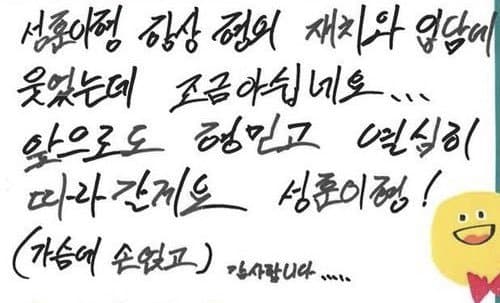 성훈이형 항상 형의 재치와 입담에
웃었는데 조금아쉽네요...
앞으로도 형믿고 열심히
따라갈게요 성훈이형!
(가슴에 손얹고) 감사합니다.....